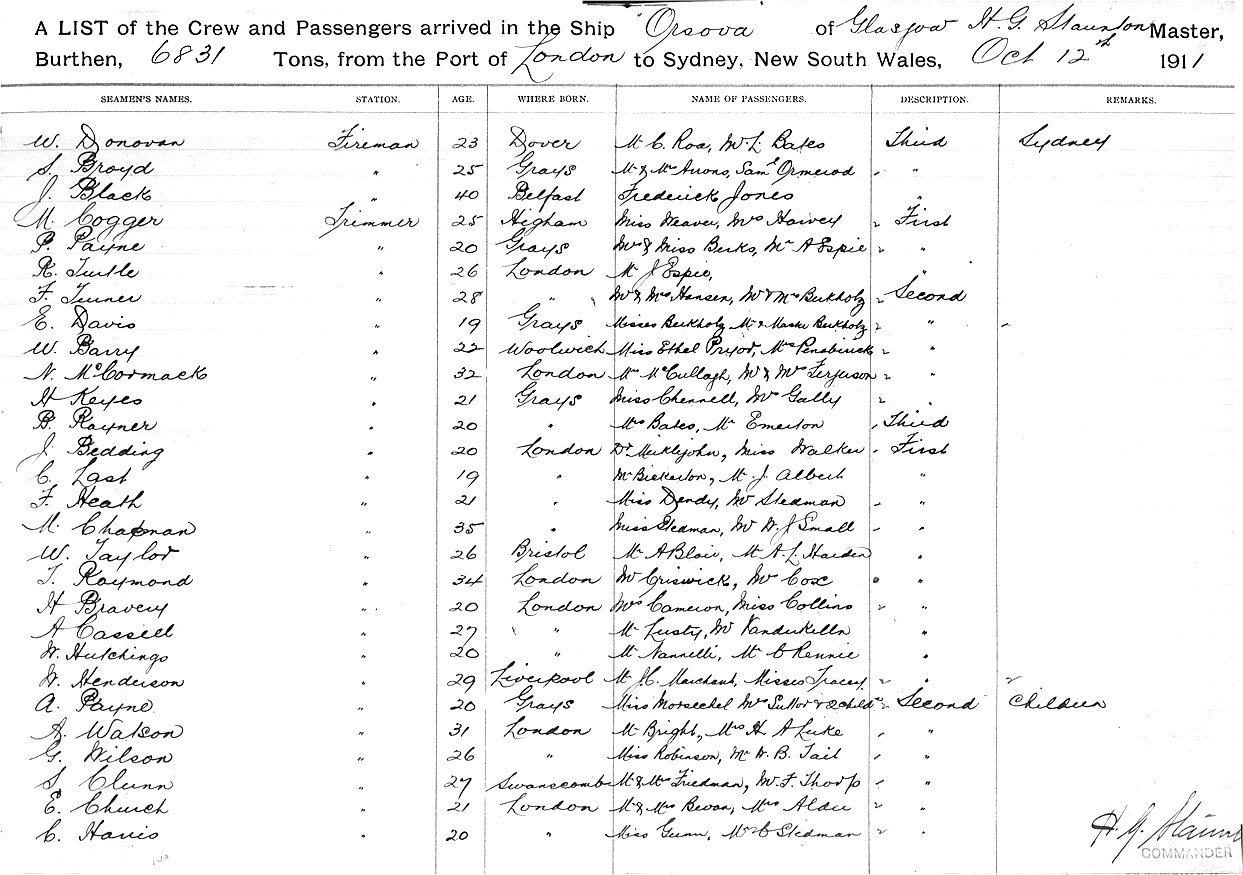 A LIST of the Crew and Passengers arrived in the Ship "Orsova of Glasgow H. G. Staunton Master,
Burthen, 6831 Tons, from the Port of London to Sydney, New South Wales, Oct 12th 1911
SEAMEN'S NAMES. STATION. AGE. WHERE BORN. NAME OF PASSENGERS. DESCRIPTION. REMARKS.
W. Donovan Fireman 23 Dover Mr C. Roa, Mr L. Bates Third Sydney
S. Broyd " 25 Grays Mr & Mrs Arrons, Saml Ormerod " "
J. Black " 40 Belfast Frederick Jones "
M. Cogger Trimmer 25 Higham Miss Weaver, Mrs Harvey " First
P. Payne " 20 Grays Mrs & Miss Berks, Mr A Espie " "
R. Turtle " 26 London Mr J Espie, "
F. Turner " 28 " Mr & Mrs Hansen, Mr & Mrs Berkholz " Second
E. Davis " 19 Grays Misses Berkholz Mr & Master Berkholz " "
W. Barry " 22 Woolwich Miss Ethel Pryor, Mrs " "
N. McCormack " 32 London Mrs McCullagh, Mr & Mrs Ferguson " "
H Keyes " 21 Grays Miss Chennell, Mr Gally " "
B. Rayner " 20 " Mrs Bates, Mr Emerton " Third
J. Bedding " 20 London Dr Meiklejohn, Miss Walker " First
C. Last " 19 " Mr Bickerton, Mr J. Albert "
F. Heath " 21 " Miss Dendy, Mr Stedman " "
M. Chapman " 35 " Miss Stedman, Mr W. J Small " "
W. Taylor " 26 Bristol Mr A Blair, Mr A. L. Harden "
T. Raymond " 34 London Mr Criswick, Mr Cox "
H Bravery " 20 London Mrs Cameron, Miss Collins " "
A Cassell " 27 " Mr Lusty, Mr "
W. Hutchings " 20 " Mr Nannelli, Mr C Rennie "
W. Henderson " 29 Liverpool Mr J. C. Marchant, Misses Tracey " " "
A. Payne " 20 Grays Miss Morsechel Mrs Suttor & 2 child " Second Children
A. Watson " 31 London Mr Bright, Mrs H A Luke " "
G. Wilson " 26 " Miss Robinson, Mr W. B. Tait " "
S. Clunn " 27 Swanscombe Mr & Mrs Friedman, Mr F. Thorp " "
E. Church " 21 London Mr & Mrs Bevan, Mrs Alder " "
C. Harris " 20 " Miss Gunn, Mr C Stedman " "
H. G. Staunton
COMMANDER